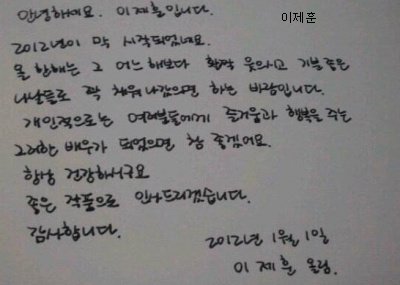 안녕하세요. 이제훈입니다.
이제훈
2012년이 막 시작되었네요.
올 한해는 그 어느해보다 활짝 웃으시고 기분좋은
나날들로 꽉 채워나갔으면 하는 바람입니다.
개인적으로는 여러분들에게 즐거움과 행복을 주는
그러한 배우가 되었으면 참 좋겠어요.
항상 건강하시구요
좋은 작품으로 인사드리겠습니다.
감사합니다.
2012년 1월 1일
이제훈 올림.